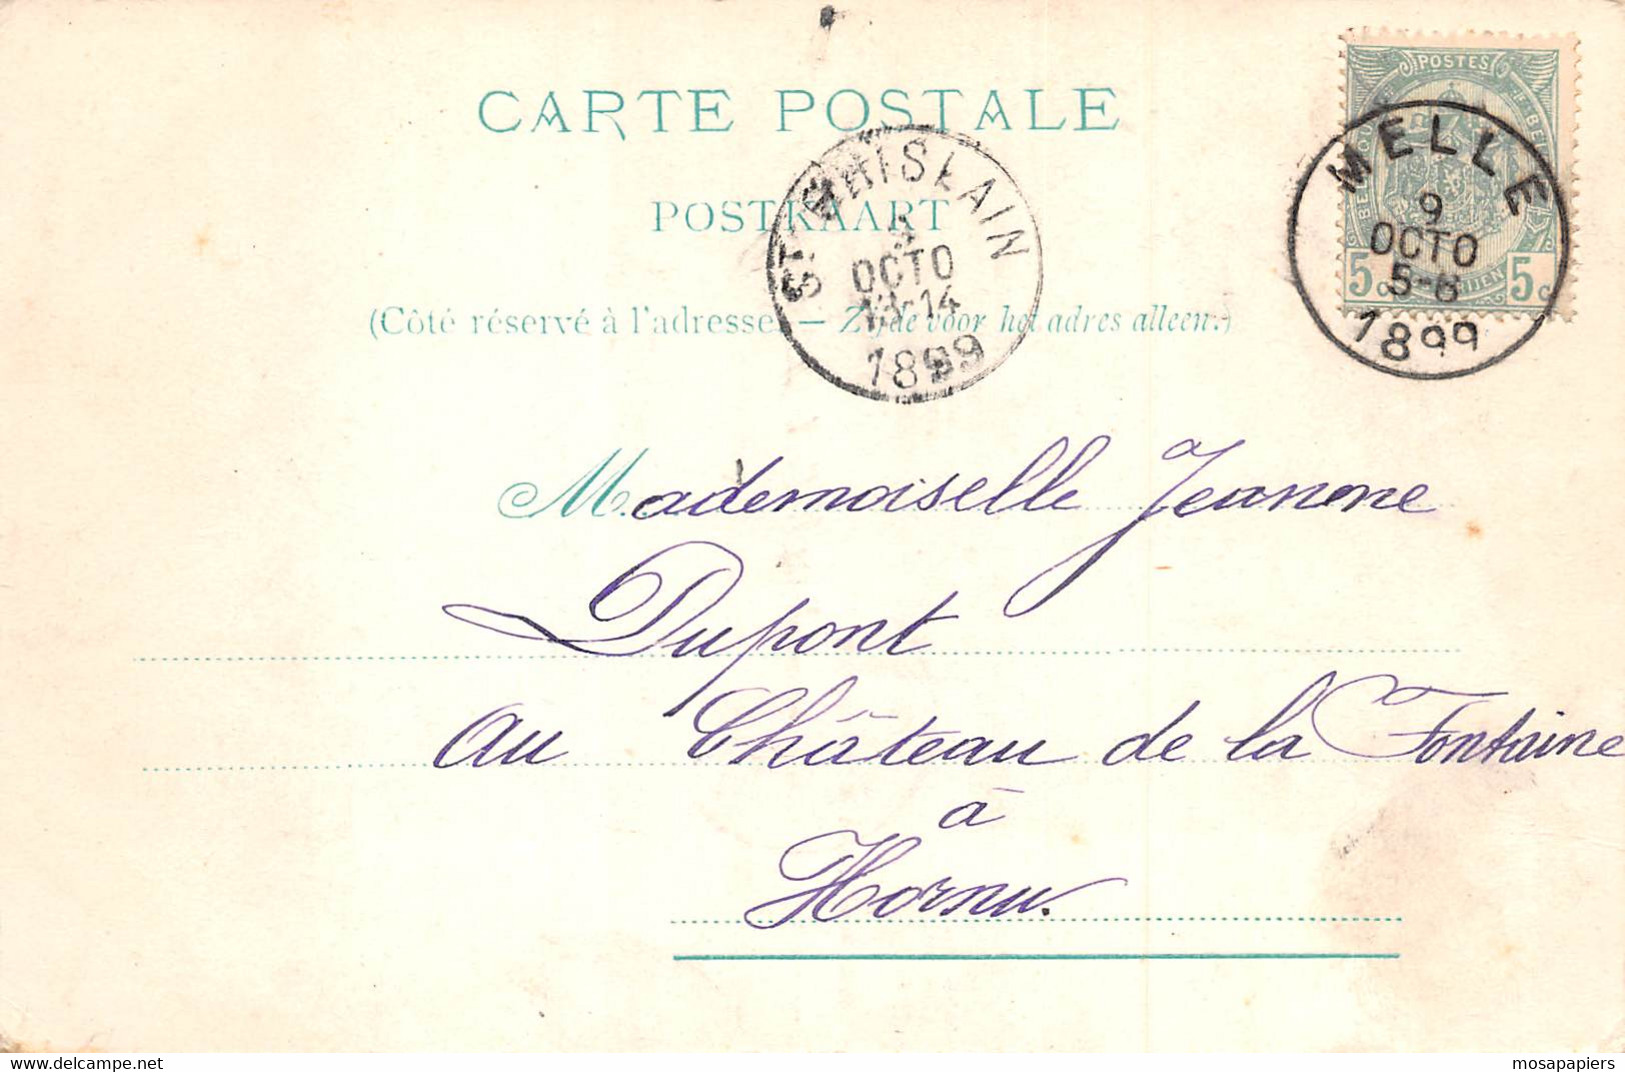 CARTE POSTALE
POSTKAART
(Côté réservé à l'adresse. — Zijde voor het adres alleen.)
POSTES
5c 5c
MELLE
9
OCTO
5-6
1899
ST GHISLAIN
OCTO
13-14
1899
Mademoiselle Jeanne
Dupont
au Château de la Fontaine
à
Hornu.
delcampe.net
mosapapiers